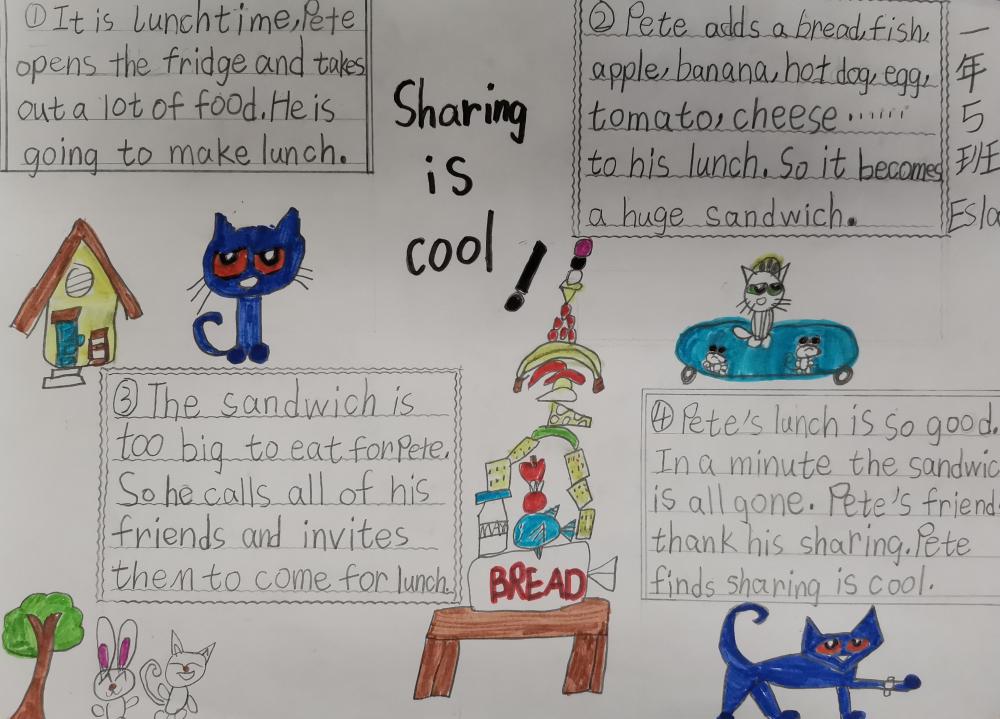 ①It is lunchtime,Pete
opens the fridge and takes
out a lot of food.He is
going to make lunch.
Sharing
is
cool!
②Pete adds a bread,fish,
apple,banana,hot dog,egg,
tomato,cheese······
to his lunch. So it becomes
a huge sandwich.
一
年
5
班
Esla
③The sandwich is
too big to eat for Pete.
So he calls all of his
friends and invites
them to come for lunch.
④Pete's lunch is so good.
In a minute the sandwic
is all gone. Pete's friends
thank his sharing.Pete
finds sharing is cool.
MAYO
BREAD